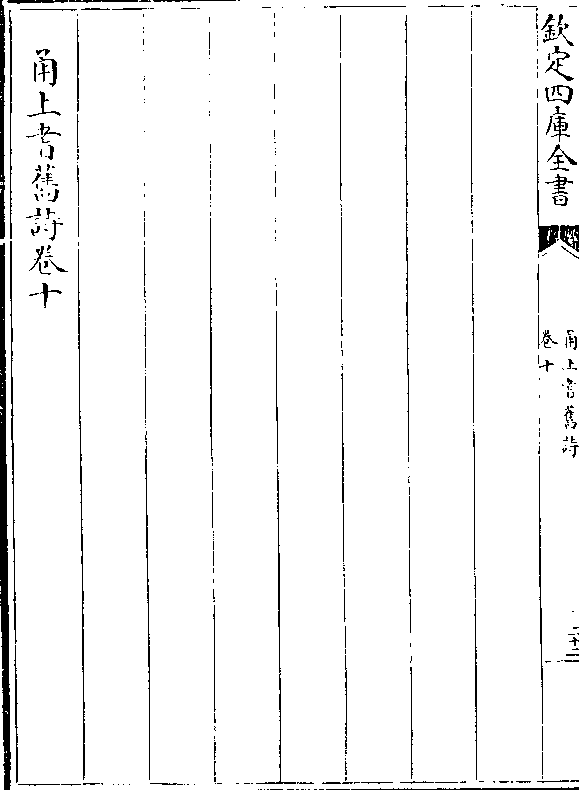 欽定四庫全書
甬上耆舊詩
卷十
甬上耆舊詩卷十